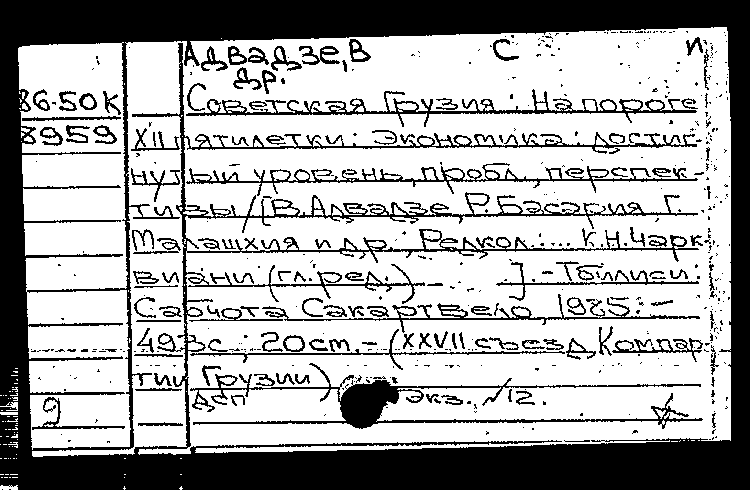 Адвадзе, В С и
др.
86-50к Советская Грузия: На пороге
8959 XII пятилетки: Экономика: достиг-
нутый уровень, пробл., перспек-
тивы / [В. Адвадзе, Р. Басария, Г.
Малашхия и др.; Редкол.: ... К.Н. Чарк-
виани (гл. ред.) ... ]. - Тбилиси:
Сабчота Сакартвело, 1985. -
493с; 20см. - (XXVII съезд Компар-
тии Грузии)
9 Дсп Экз. №12.